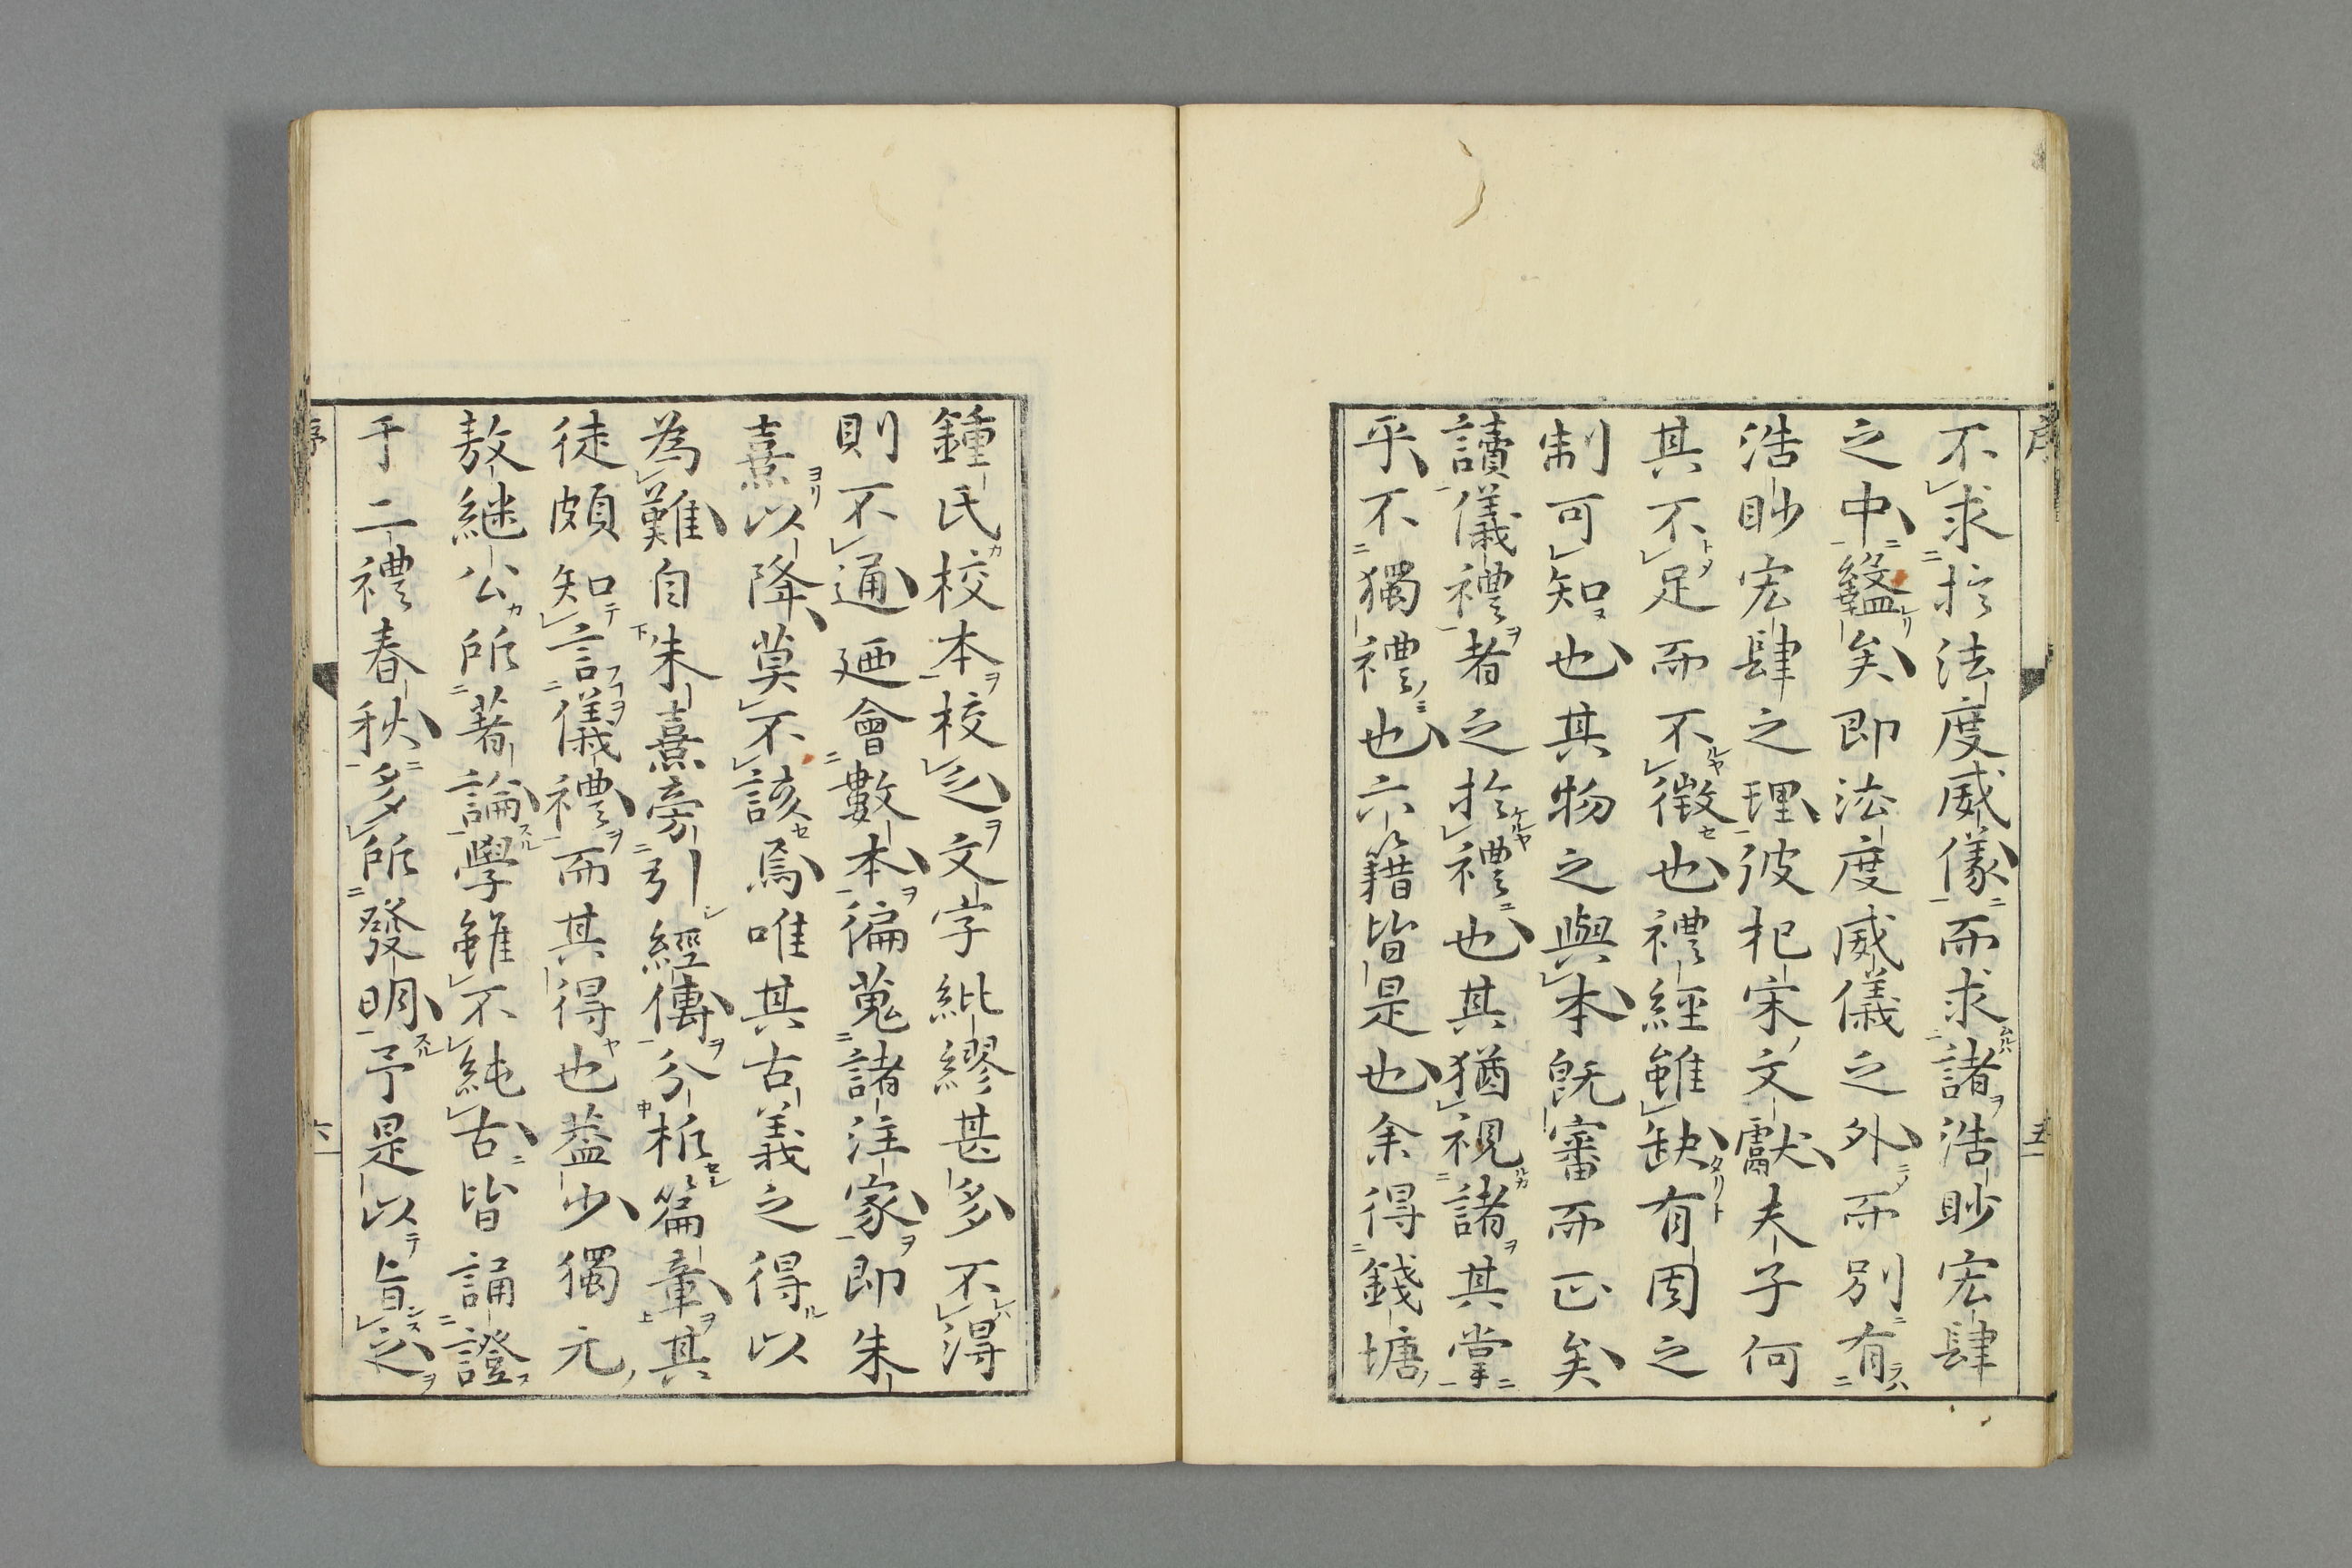 序
不求扵法度威儀而求諸浩眇宏肆
之中盭矣即法度威儀之外而別有
浩眇宏肆之理彼杞宋文獻夫子何
其不足而不徵也禮經雖缺有周之
制可知也其物之與本既審而正矣
讀儀禮者之扵禮也其猶視諸其掌
乎不獨禮也六籍皆是也余得錢塘
五
鍾氏校本校之文字紕繆甚多不得
則不通迺會數本徧蒐諸注家即朱
熹以降莫不該焉唯其古義之得以
為難自朱熹旁引經傳分析篇章其
徒頗知言儀禮而其得也葢少獨元
敖継公所著論學雖不純古皆誦證
于二禮春秋多所發明予是以旨之
序
六